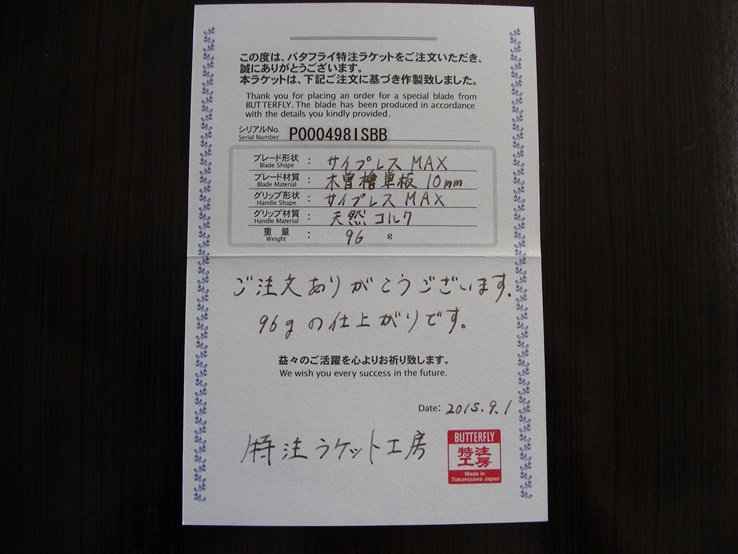 この度は、バタフライ特注ラケットをご注文いただき、
誠にありがとうございます。
本ラケットは、下記ご注文に基づき作製致しました。
Thank you for placing an order for a special blade from
BUTTERFLY. The blade has been produced in accordance
with the details you kindly provided.
シリアルNo.
Serial Number
P0004981SBB
ブレード形状
Blade Shape
: サイプレスMAX
ブレード材質
Blade Material
: 木曽檜単板 10mm
グリップ形状
Handle Shape
: サイプレスMAX
グリップ材質
Handle Material
: 天然コルク
重量
Weight
: 96 g
ご注文ありがとうございます.
96gの仕上がりです。
益々のご活躍を心よりお祈り致します。
We wish you every success in the future.
Date: 2015.9.1
特注ラケット工房
BUTTERFLY
特注
工房
Made in
Tokorozawa Japan